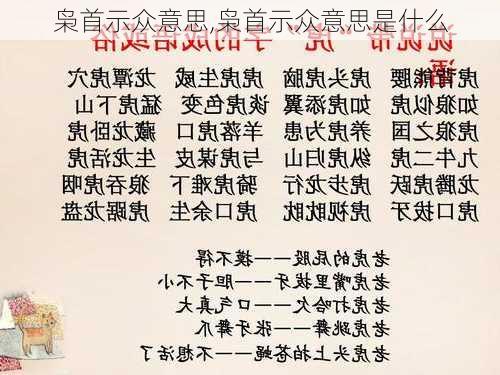 枭首示众意思,枭首示众意思是什么
说说带“虎”字的成语或俗语
虎背熊腰 虎头虎脑 虎虎生威 龙潭虎穴
如狼似虎 如虎添翼 谈虎色变 猛虎下山
虎狼之国 养虎为患 羊落虎口 藏龙卧虎
九牛二虎 纵虎归山 与虎谋皮 生龙活虎
龙腾虎跃 虎步龙行 骑虎难下 狼吞虎咽
虎口拔牙 虎视眈眈 虎口余生 虎踞龙盘
老虎的屁股———摸不得
老虎嘴里拔牙———胆子不小
老虎打哈欠———口气真大
老虎跳舞———张牙舞爪
老虎头上拍苍蝇———不想活了